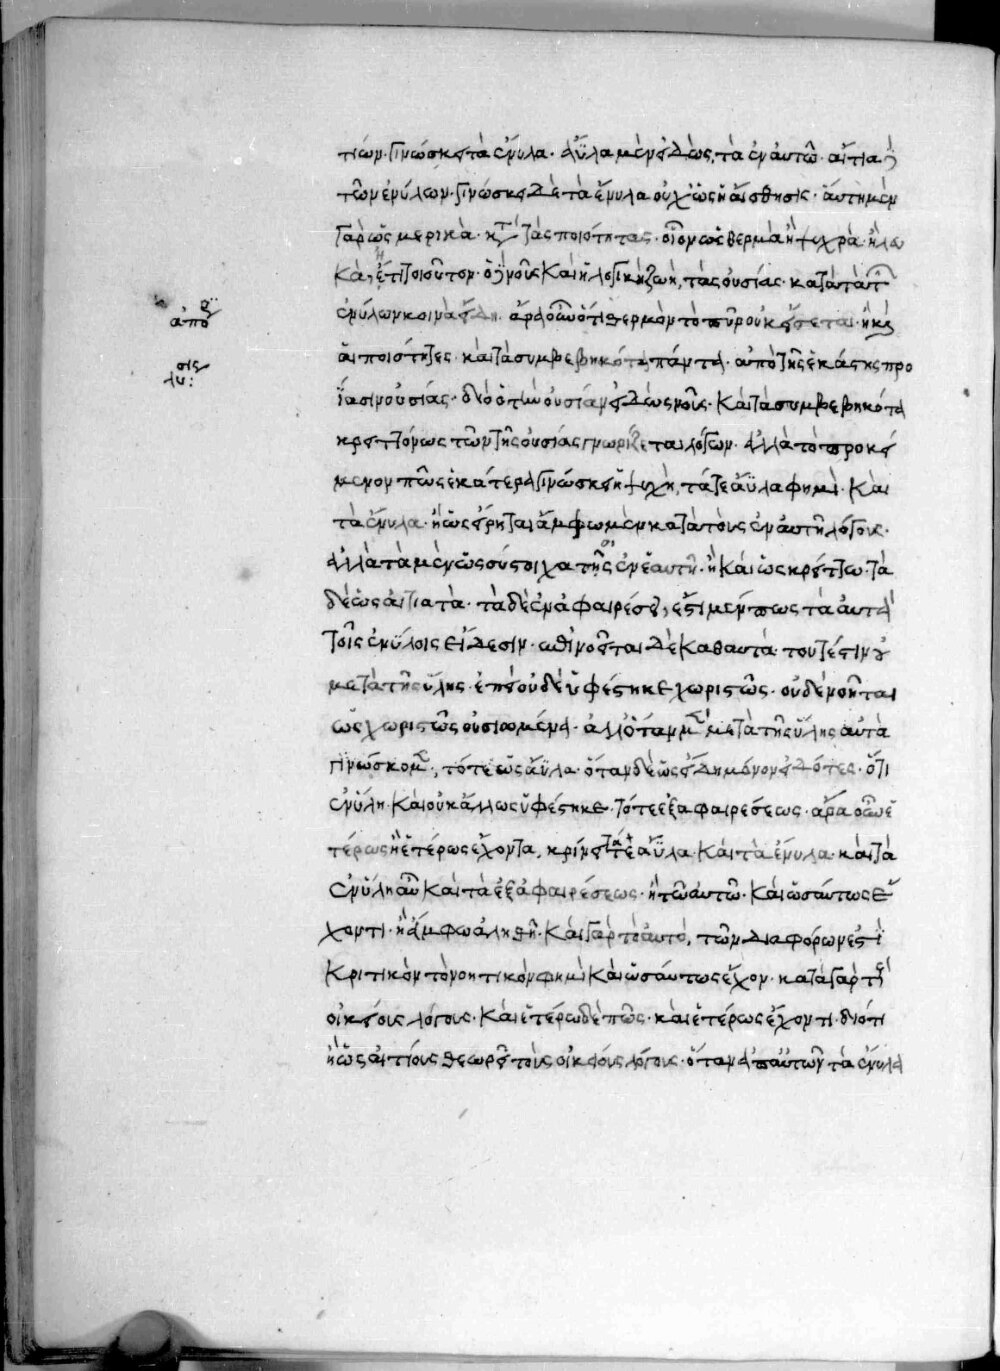 τίων· γινώσκει τὰ ἔνυλα· ἄϋλα μὲν εἰδὼς, τὰ ἐν αὐτῶ αἴτια
τῶν ἐνύλων· γινώσκει δὲ τὰ ἔνυλα οὐχ ὡς ἡ αἴσθησις· αὕτη μὲν
γὰρ ὡς μερικὰ· κατὰ τὰς ποιότητας· οἷον ὡς θερμὰ ἢ ψυχρὰ· ἢ λευ
κὰ, ἤ τι τοιοῦτον· ὁ νοῦς καὶ ἡ λογικὴ ζωὴ, τὰς οὐσίας· κατὰ τὰ τῶν
ἐνύλων κοινὰ εἴδη· ἆρ' οὖν ὅτι θερμὸν τὸ πῦρ οὐκ εἴσεται· ἢ καὶ
ἀπορία
αἱ ποιότητες· καὶ τὰ συμβεβηκότα πάντα· ἀπὸ τῆς ἑκάστης πρό
λύσις:
ϊασιν οὐσίας· διὸ ὁ τὴν οὐσίαν εἰδὼς νοῦς· καὶ τὰ συμβεβηκότα
κρειττόνως τῶν τῆς οὐσίας γνωρίζεται λόγων· ἀλλὰ τὸ προκεί
μενον πῶς ἑκάτερα γινώσκει ἡ ψυχὴ, τά τε ἄϋλα φημὶ· καὶ
τὰ ἔνυλα· ἢ ὡς εἴρηται ἄμφω μὲν κατὰ τοὺς ἐν αὐτῆ λόγους·
ἀλλὰ τὰ μὲν ὡς σύστοιχα τοῖς ἐν ἑαυτῆ· ἢ καὶ ὡς κρείττω· τὰ
δὲ ὡς αἰτιατὰ· τὰ δὲ ἐν ἀφαιρέσει, ἔστι μέν πως τὰ αὐτὰ
τοῖς ἐνύλοις εἴδεσιν· νοεῖται δὲ καθ' αὑτὰ· τουτέστιν οὐ
μετὰ τῆς ὕλης· ἐπεὶ οὐδὲ ὑφέστηκε χωριστῶς· οὐδὲ νοῆται
ὡς χωριστῶς οὐσιωμένα· ἀλλ' ὅταν μὲν μετὰ τῆς ὕλης αὐτὰ
γινώσκομεν, τότε ὡς ἄϋλα· ὅταν δὲ ὡς εἴδη μόνον εἰδότες· ὅτι
ἐν ὕλη· καὶ οὐκ ἄλλως ὑφέστηκε· τότε ἐξ ἀφαιρέσεως· ἆρα οὖν ἑ
τέρως ἢ ἑτέρως ἔχοντα, κρίνει τά τε ἄϋλα· καὶ τὰ ἔνυλα· καὶ τὰ
ἐν ὕλη αὖ καὶ τὰ ἐξ ἀφαιρέσεως· ἢ τῶ αὐτῶ· καὶ ὡσαύτως ἔ
χοντι· ἢ ἄμφω ἀληθῆ· καὶ γὰρ τὸ αὐτὸ, τῶν διαφόρων ἐστὶ
κριτικὸν τὸ νοητικὸν φημὶ καὶ ὡσαύτως ἔχον· κατὰ γὰρ τοὺς
οἰκείους λόγους· καὶ ἑτέρω δέ πως· καὶ ἑτέρως ἔχοντι· διότι
ἢ ὡς αἰτίους θεωρεῖ τοὺς οἰκείους λόγους· ὅταν ἀπ' αὐτῶν τὰ ἔνυλα